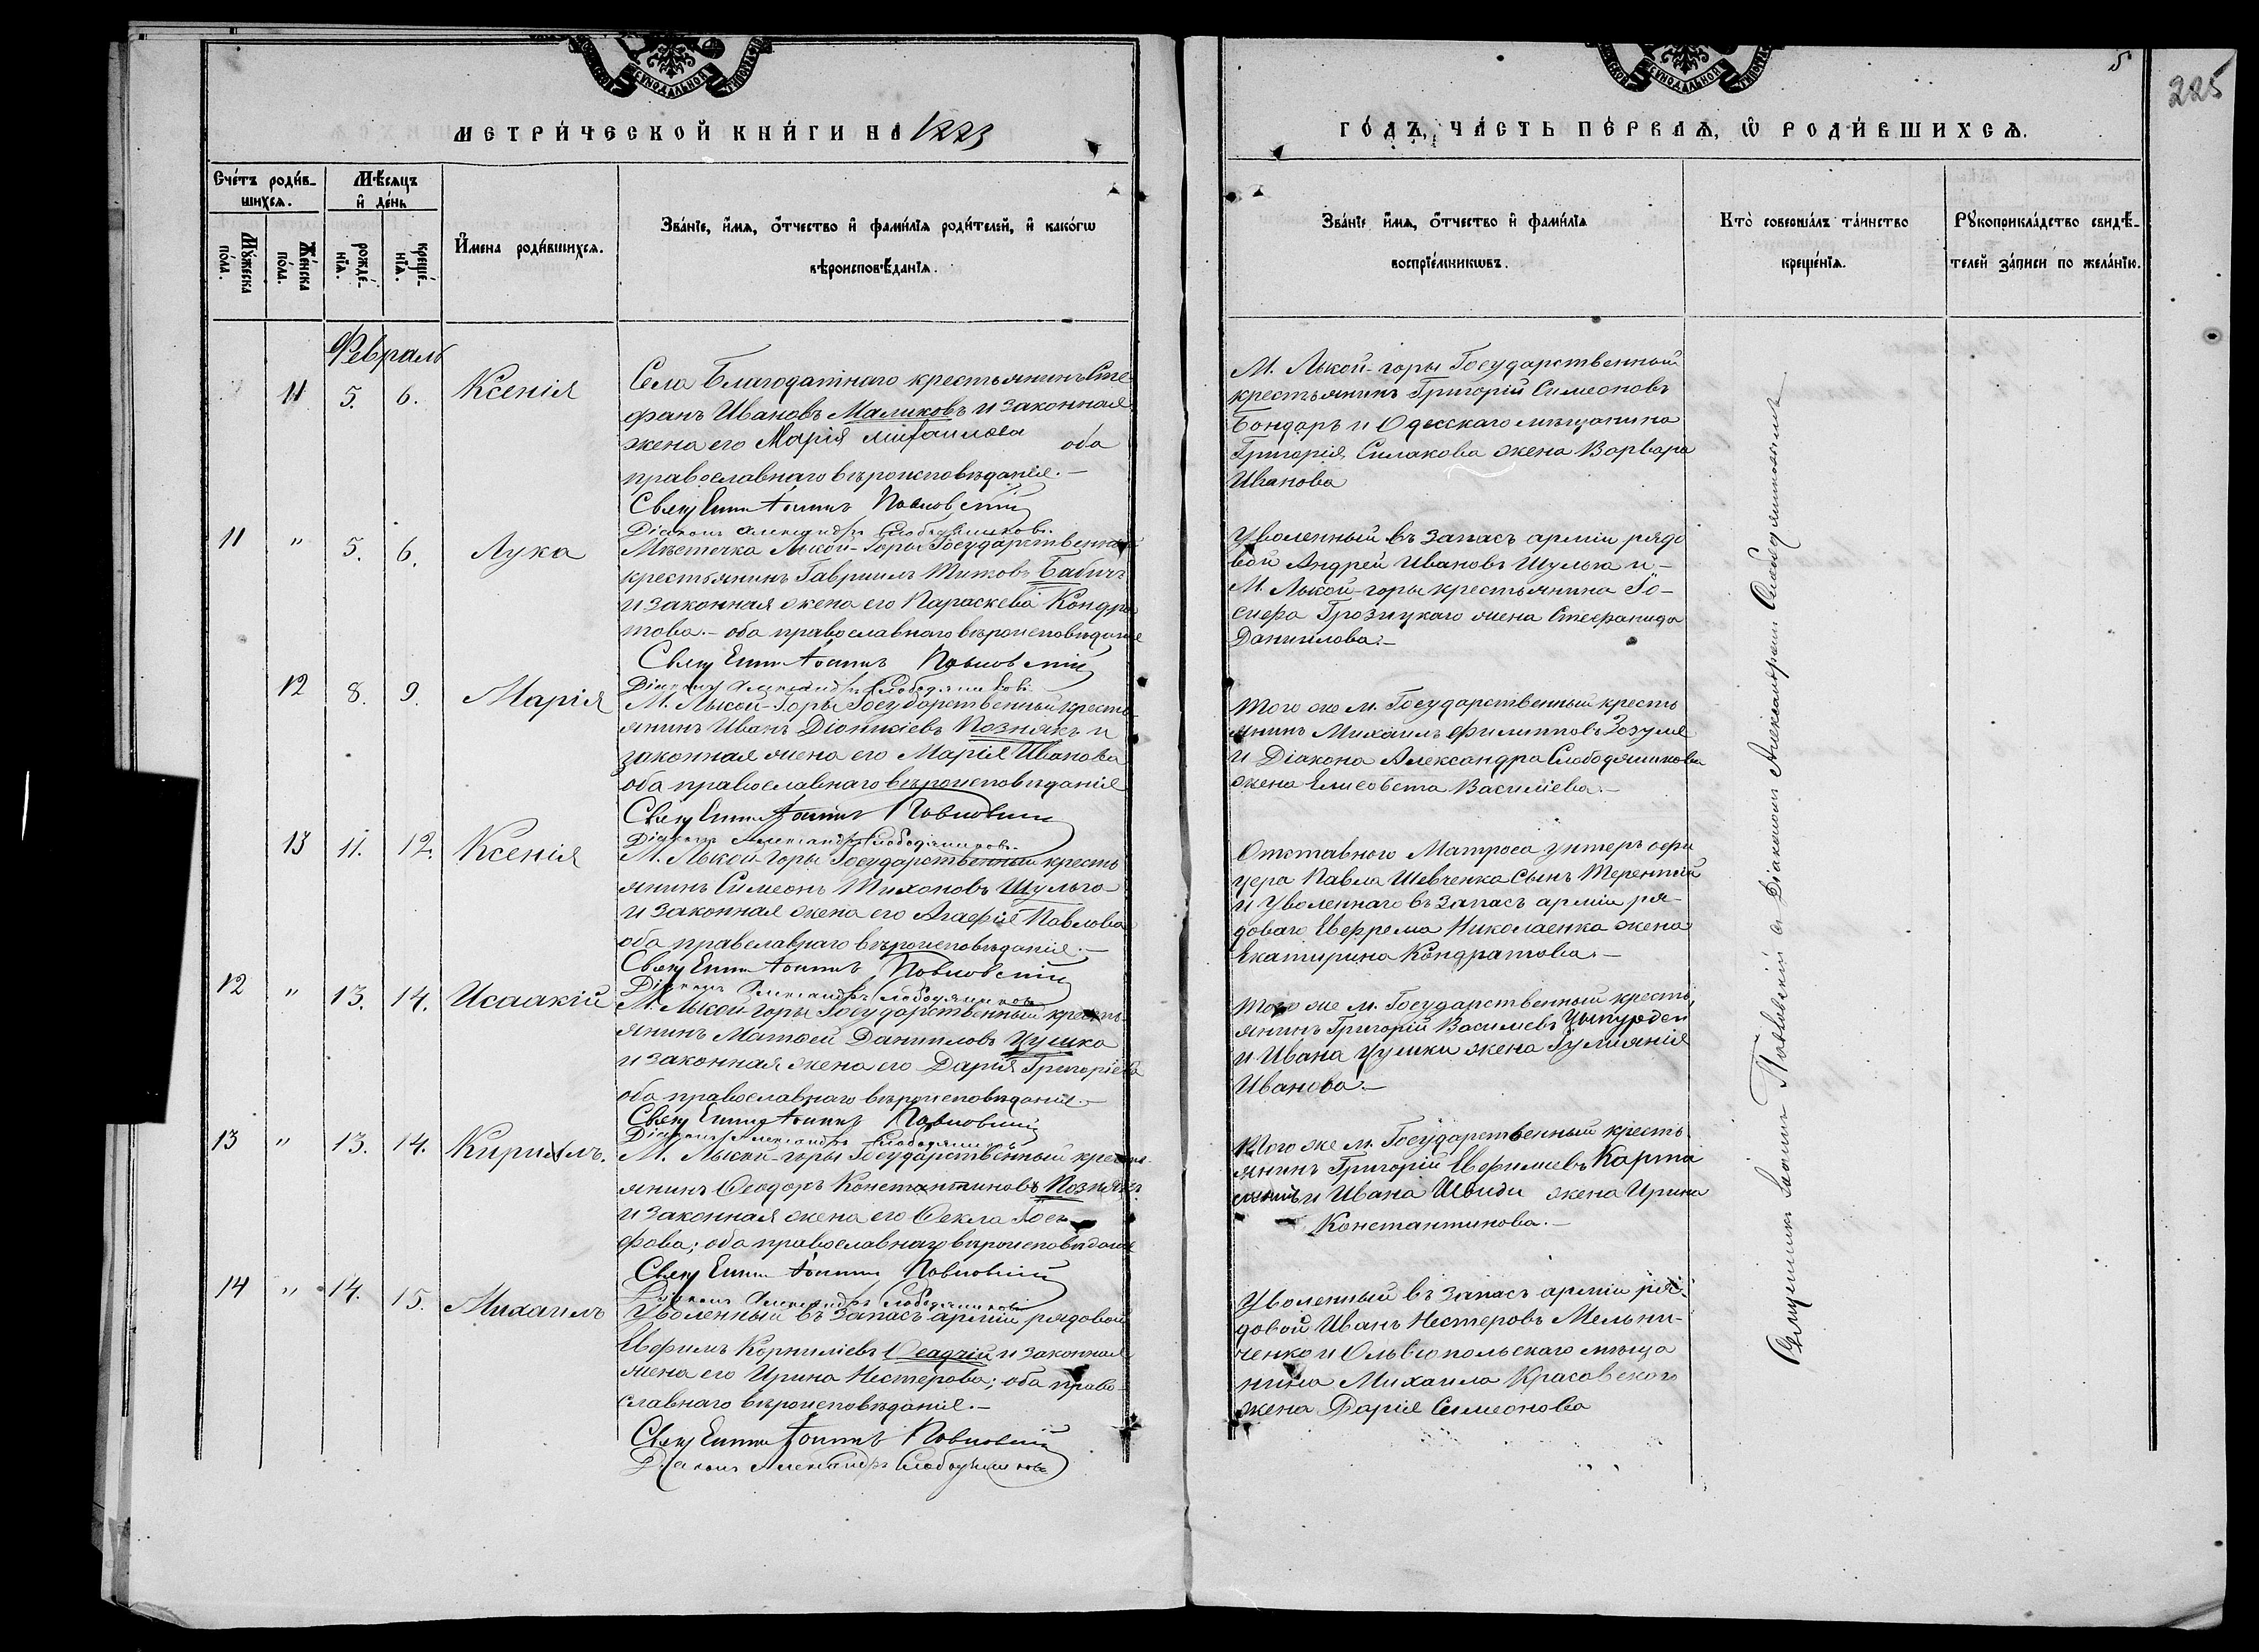 СѴНОДАЛЬНОЙ
СѴНОДАЛЬНОЙ
5
225
МЕТРИ́ЧЕСКОЙ КНИ́ГИ НА 1883
ГО́ДЪ, ЧА́СТЬ ПЕ́РВАѦ, Ѡ҆ РОДИ́ВШИХСѦ.
Сче́тъ роди́в-
шихсѧ.
Мꙋ́жеска по́ла.
Же́нска по́ла.
Мѣ́сѧцъ
и҆ де́нь
рожде́-
нїѧ.
креще́-
нїѧ.
И҆мена роди́вшихсѧ.
Зва́нїе, и҆́мѧ, ѻ҆́тчество и҆ фами́лїѧ роди́телей, и҆ како́гѡ
вѣроисповѣ́данїѧ.
Зва́нїе и҆́мѧ, ѻ҆́тчество и҆ фами́лїѧ
воспрїе́мникѡвъ.
Кто̀ соверша́лъ та́инство
креще́нїѧ.
Рꙋкоприкла́дство свидѣ́-
телей за́писи по жела́нїю.
Февраль
11 5. 6. Ксенія
Села Благодатнаго крестьянинъ Сте
фанъ Ивановъ Маликовъ и законная
жена его Марія Михаилова оба
православнаго вѣроисповѣданія.-
Іоаннъ Павловскій
Діаконъ Александръ Слободяниковъ
М. Лысой-горы Государственный
крестьянинъ Григорій Симеоновъ
Бондарь и Одесскаго мѣщанина
Григорія Силакова жена Варвара
Иванова
11 " 5. 6. Лука
Мѣстечка Лысой-Горы Государственный
крестьянинъ Гавриилъ Титовъ Бабичъ
и законная жена его Параскева Кондра
това.- оба православнаго вѣроисповѣданія
Іоаннъ Павловскій
Діаконъ Александръ Слободяниковъ
Уволенный въ запасъ арміи рядо
вой Андрей Ивановъ Шульга и -
М. Лысой-горы крестьянина Іо-
сифа Грозицкаго жена Стефанида
Даниилова.-
12 8. 9. Марія
М. Лысой-Горы Государственный кресть
янинъ Иванъ Діонисіевъ Познякъ и
законная жена его Марія Иванова
оба православнаго вѣроисповѣданія
Іоаннъ Павловскій
Діаконъ Александръ Слободяниковъ
Того же м. Государственный кресть
янинъ Михаилъ Филипповъ Зозуля
и Діакона Александра Слободяникова
жена Елисавета Василіева.-
13 11. 12. Ксенія
М. Лысой-горы Государственный кресть
янинъ Симеонъ Тихоновъ Шульга
и законная жена его Агафія Павлова
оба православнаго вѣроисповѣданія.-
Іоаннъ Павловскій
Діаконъ Александръ Слободяниковъ
Отставного Матроса унтеръ офи
цера Павла Шевченка сынъ Терентій
и Уволеннаго въ запасъ арміи ря-
доваго Евфрема Николаенка жена
Екатирина Кондратова.-
12 " 13. 14. Исаакій
М. Лысой-горы Государственный кресть
янинъ Матѳей Данииловъ Цушко
и законная жена его Дарія Григоріева
оба православнаго вѣроисповѣданія.-
Іоаннъ Павловскій
Діаконъ Александръ Слободяниковъ
Того же м. Государственный кресть
янинъ Григорій Василіевъ
и Ивана Цушки жена Іуліанія
Иванова.-
13 " 13. 14. Кириллъ.
М. Лысой-горы Государственный кресть
янинъ Ѳеодоръ Константиновъ Познякъ
и законная жена его Ѳекла Іоси
фова; оба православнаго вѣроисповѣданія
Іоаннъ Павловскій
Діаконъ Александръ Слободяниковъ
Того же м. Государственный кресть
янинъ Григорій Евфиміевъ
и Ивана Швиди жена Ирина
Константинова.-
14 " 14. 15. Михаилъ
Уволенный въ запасъ арміи рядовой
Евфимъ Корниліевъ Осадчій и законная
жена его Ирина Нестерова; оба право-
славнаго вѣроисповѣданія.-
Іоаннъ Павловскій
Діаконъ Александръ Слободяниковъ
Уволенный въ запасъ арміи ря-
довой Иванъ Нестеровъ Мельни-
ченко и Ольвіопольскаго мѣща
нина Михаила Красовскаго
жена Дарія Симеонова
Священникъ Іоаннъ Павловскій съ Діакономъ Александромъ Слободяниковымъ